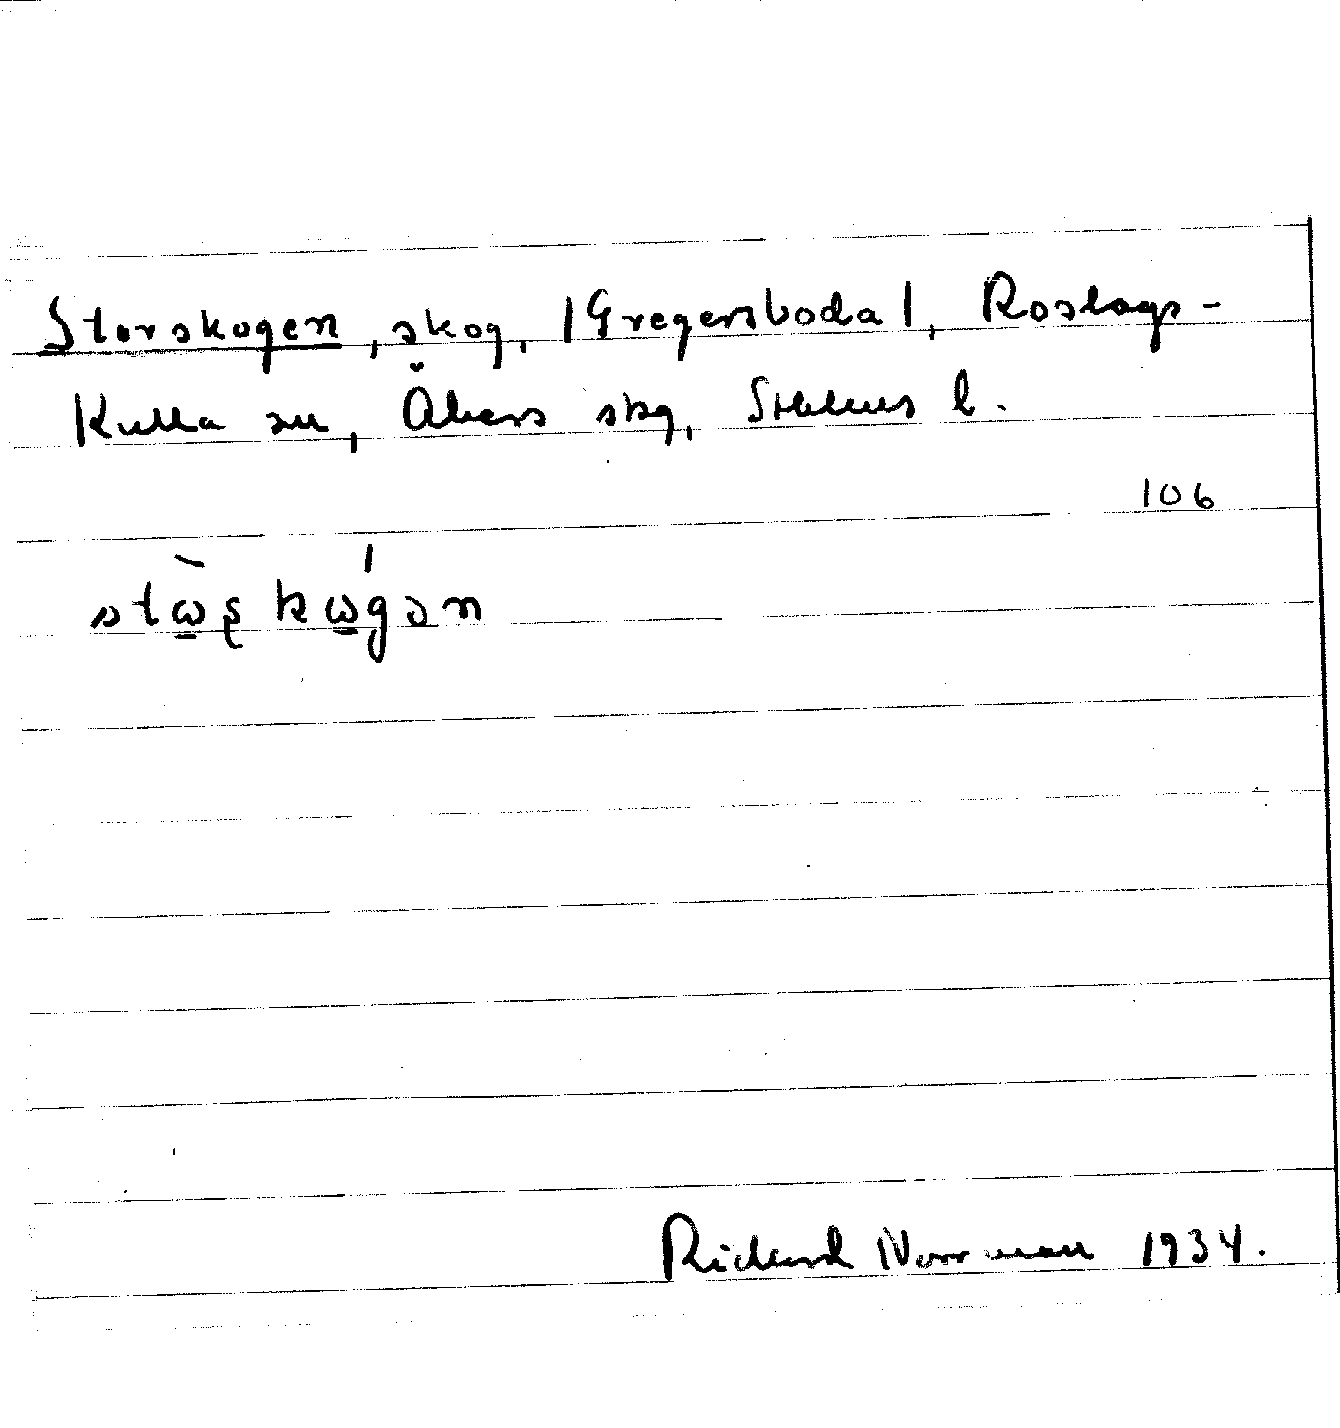 Storskogen, skog, |Gregersboda|, Roslags-
Kulla sn, Åkers skg, Sthlms l.
106
stɷ̀ʂkɷ́gən
Rickard Norrman 1934.